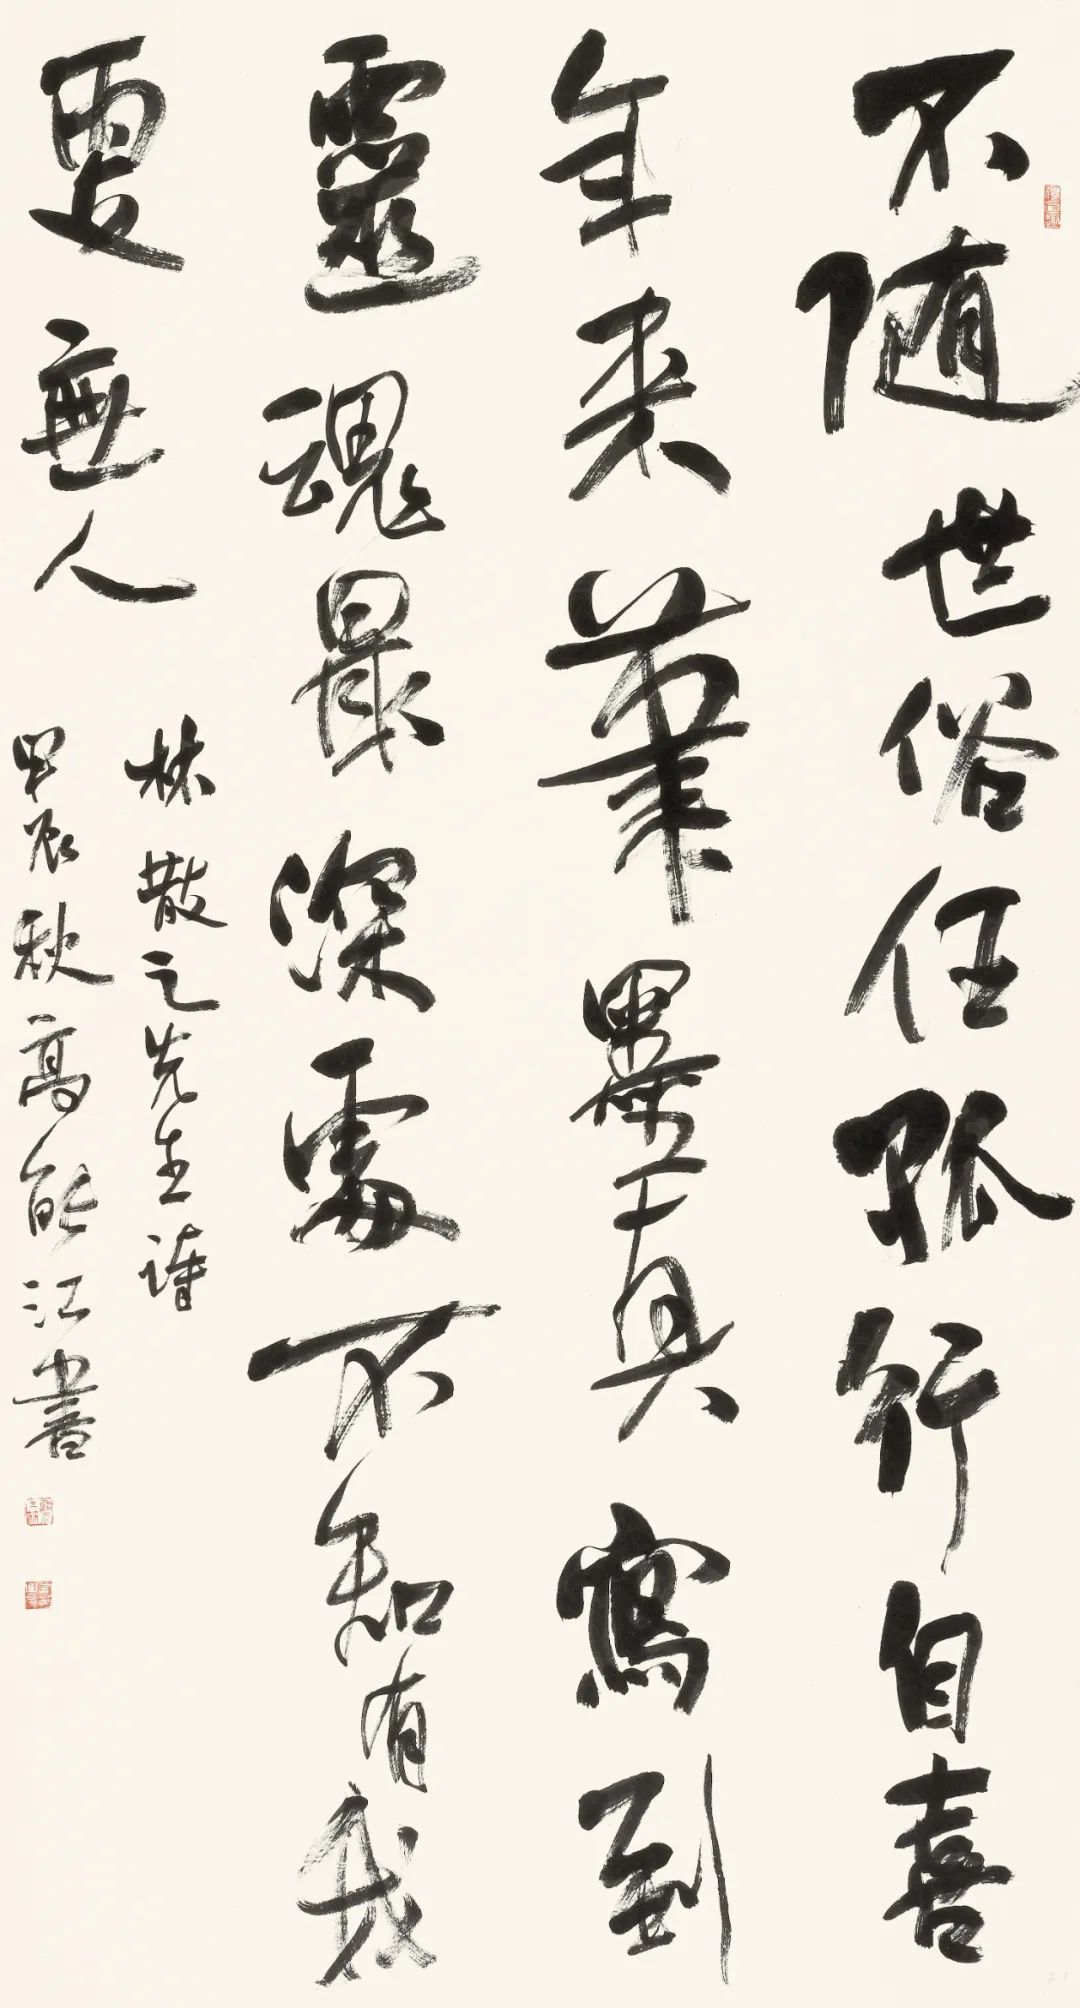 不随世俗任孤行自喜
年来笔墨真寫到
靈魂最深處不知有我
更無人
林散之先生詩
甲辰秋高能江書